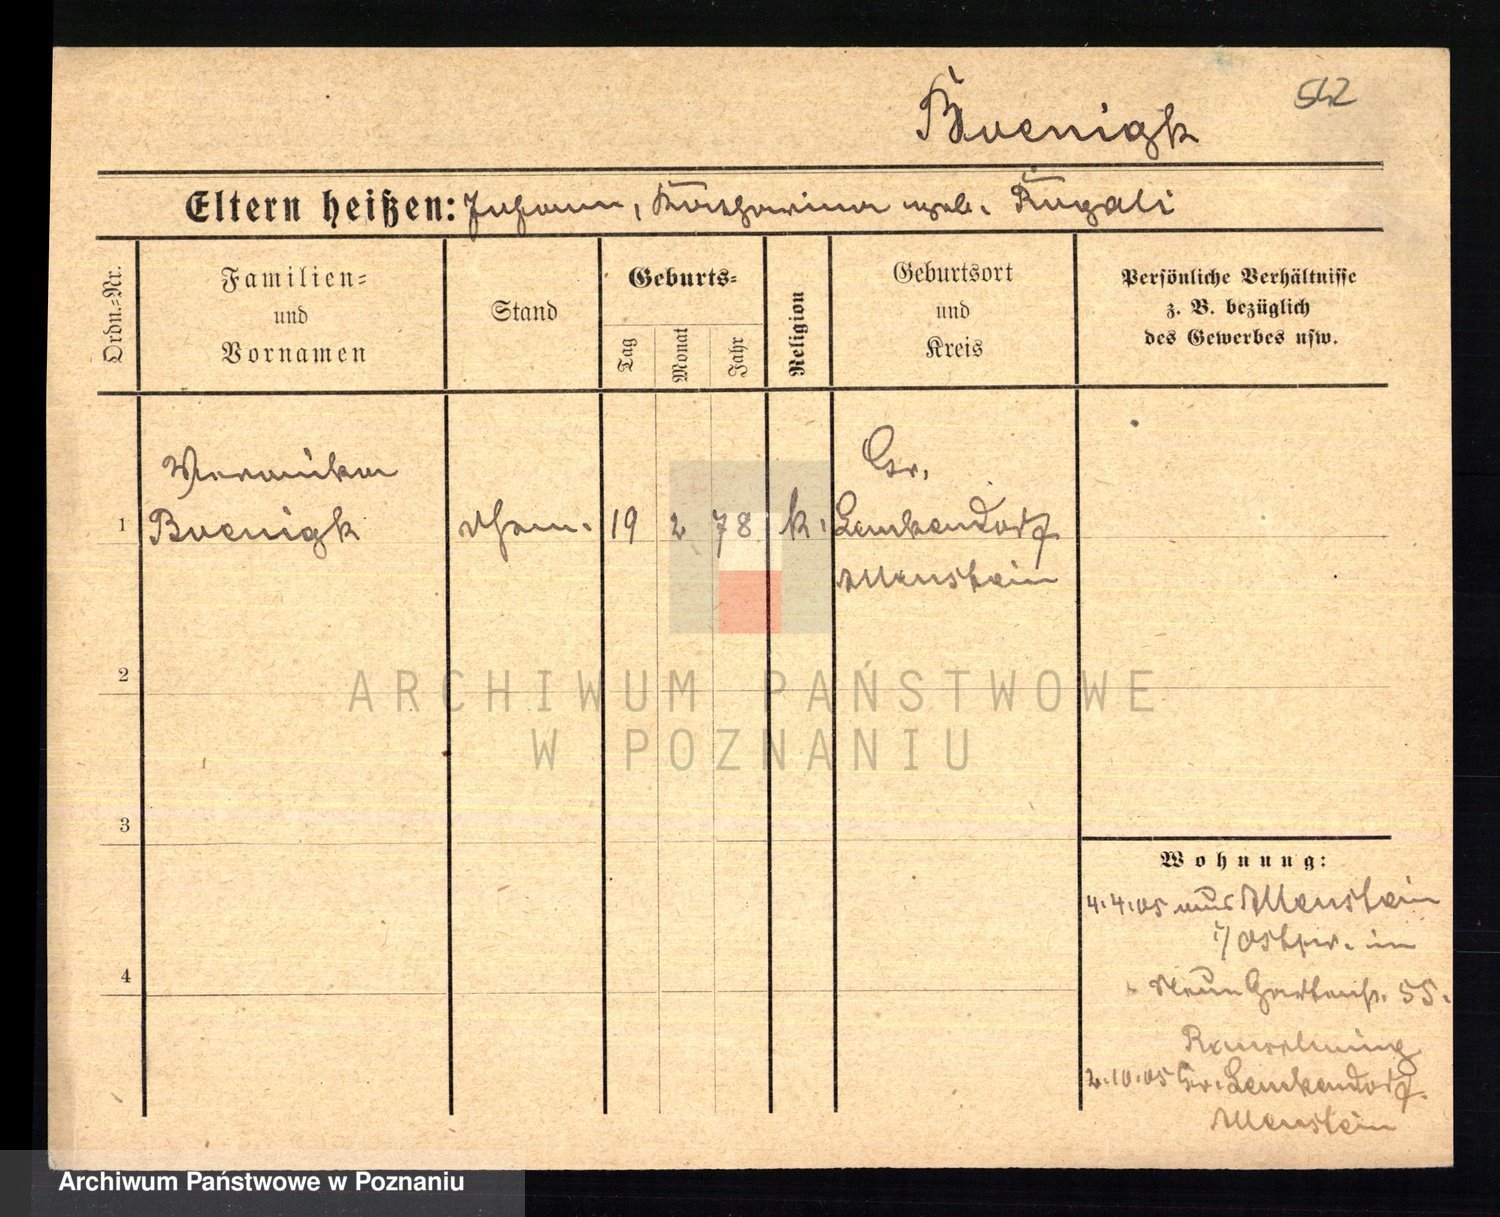 542
Boenigk
Eltern heißen: Johann, Katharina geb. Rogalli
Ordn.-Nr.
Familien-
und
Vornamen
Stand
Geburts-
Tag
Monat
Jahr
Religion
Geburtsort
und
Kreis
Persönliche Verhältnisse
z. B. bezüglich
des Gewerbes usw.
Veronika
1 Boenigk
19 2 78 k.
Gr.
Lemkendorf
Allenstein
2
ARCHIWUM PAŃSTWOWE
W POZNANIU
3
Wohnung:
4.4.05 aus Allenstein
i/Ostpr. in
Neue Gartenstr. 55.
4
2.10.05 Gr. Lemkendorf
Allenstein
Archiwum Państwowe w Poznaniu